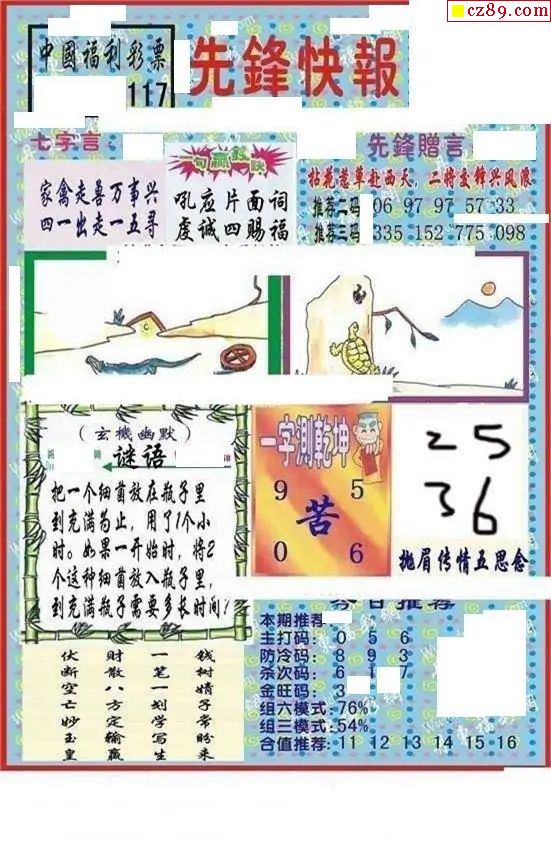 cz89.com
中國福利彩票
117
先鋒快報
七字言:
家禽走喜万事兴
四一出走一五寻
一句赢錢诀
吼应片面词
虔诚四赐福
先鋒赠言:
拈花惹草赴西天,二将交锋兴风浪
推荐二码 06 97 97 57 33
推荐三码 335 152 775 098
(玄機幽默)
谜语
把一个细菌放在瓶子里
到充满为止,用了1个小
时。如果一开始时,将2
个这种细菌放入瓶子里,
到充满瓶子需要多长时间?
一字測乾坤
9 5
苦
0 6
25
36
抛眉传情五思念
今日推荐
本期推荐
主打码: 0 5 6
防冷码: 8 9 3
杀次码: 6 1 7
金旺码: 3
组六模式:76%
组三模式:54%
合值推荐:11 12 13 14 15 16
钱树婧子常盼来
一笔一划学写生
财散八方定输赢
伏断空亡妙玉皇